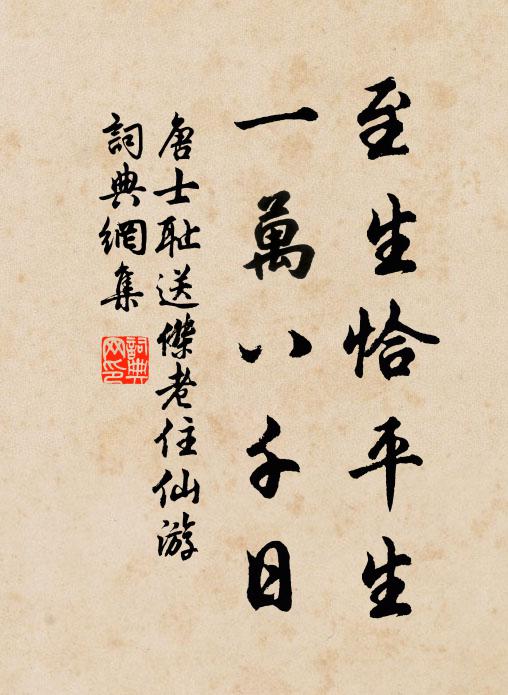 至生恰平生
一萬八千日
唐士耻送傑老住仙游
詞典網集
詞典網印